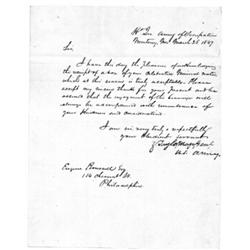 Hd Qrs Army of Occupation
Monterey, Mex. March 25th 1847
Sir,
I have this day the pleasure of acknowledging
the receipt of a box of your Mineral water
which at this season is truly acceptable. Please
accept my many thanks for your present and be
assured that the enjoyment of the beverage will
always be accompanied with remembrance of
your kindness and consideration.
I am sir very truly & respectfully
your Obedient Servant
U.S. Army
Eugene Roussell Esq
114 Chesnut St.
Philadelphia